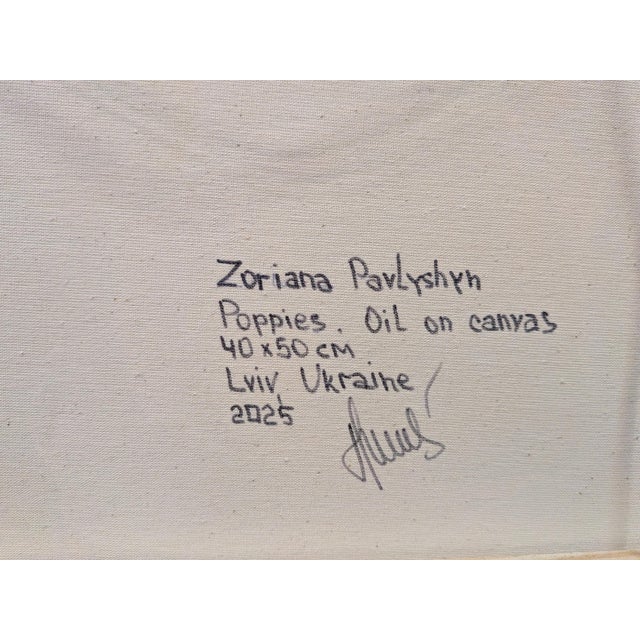 Zoriana Pavlyshyn
Poppies. Oil on canvas
40x50 см
Lviv, Ukraine
2025